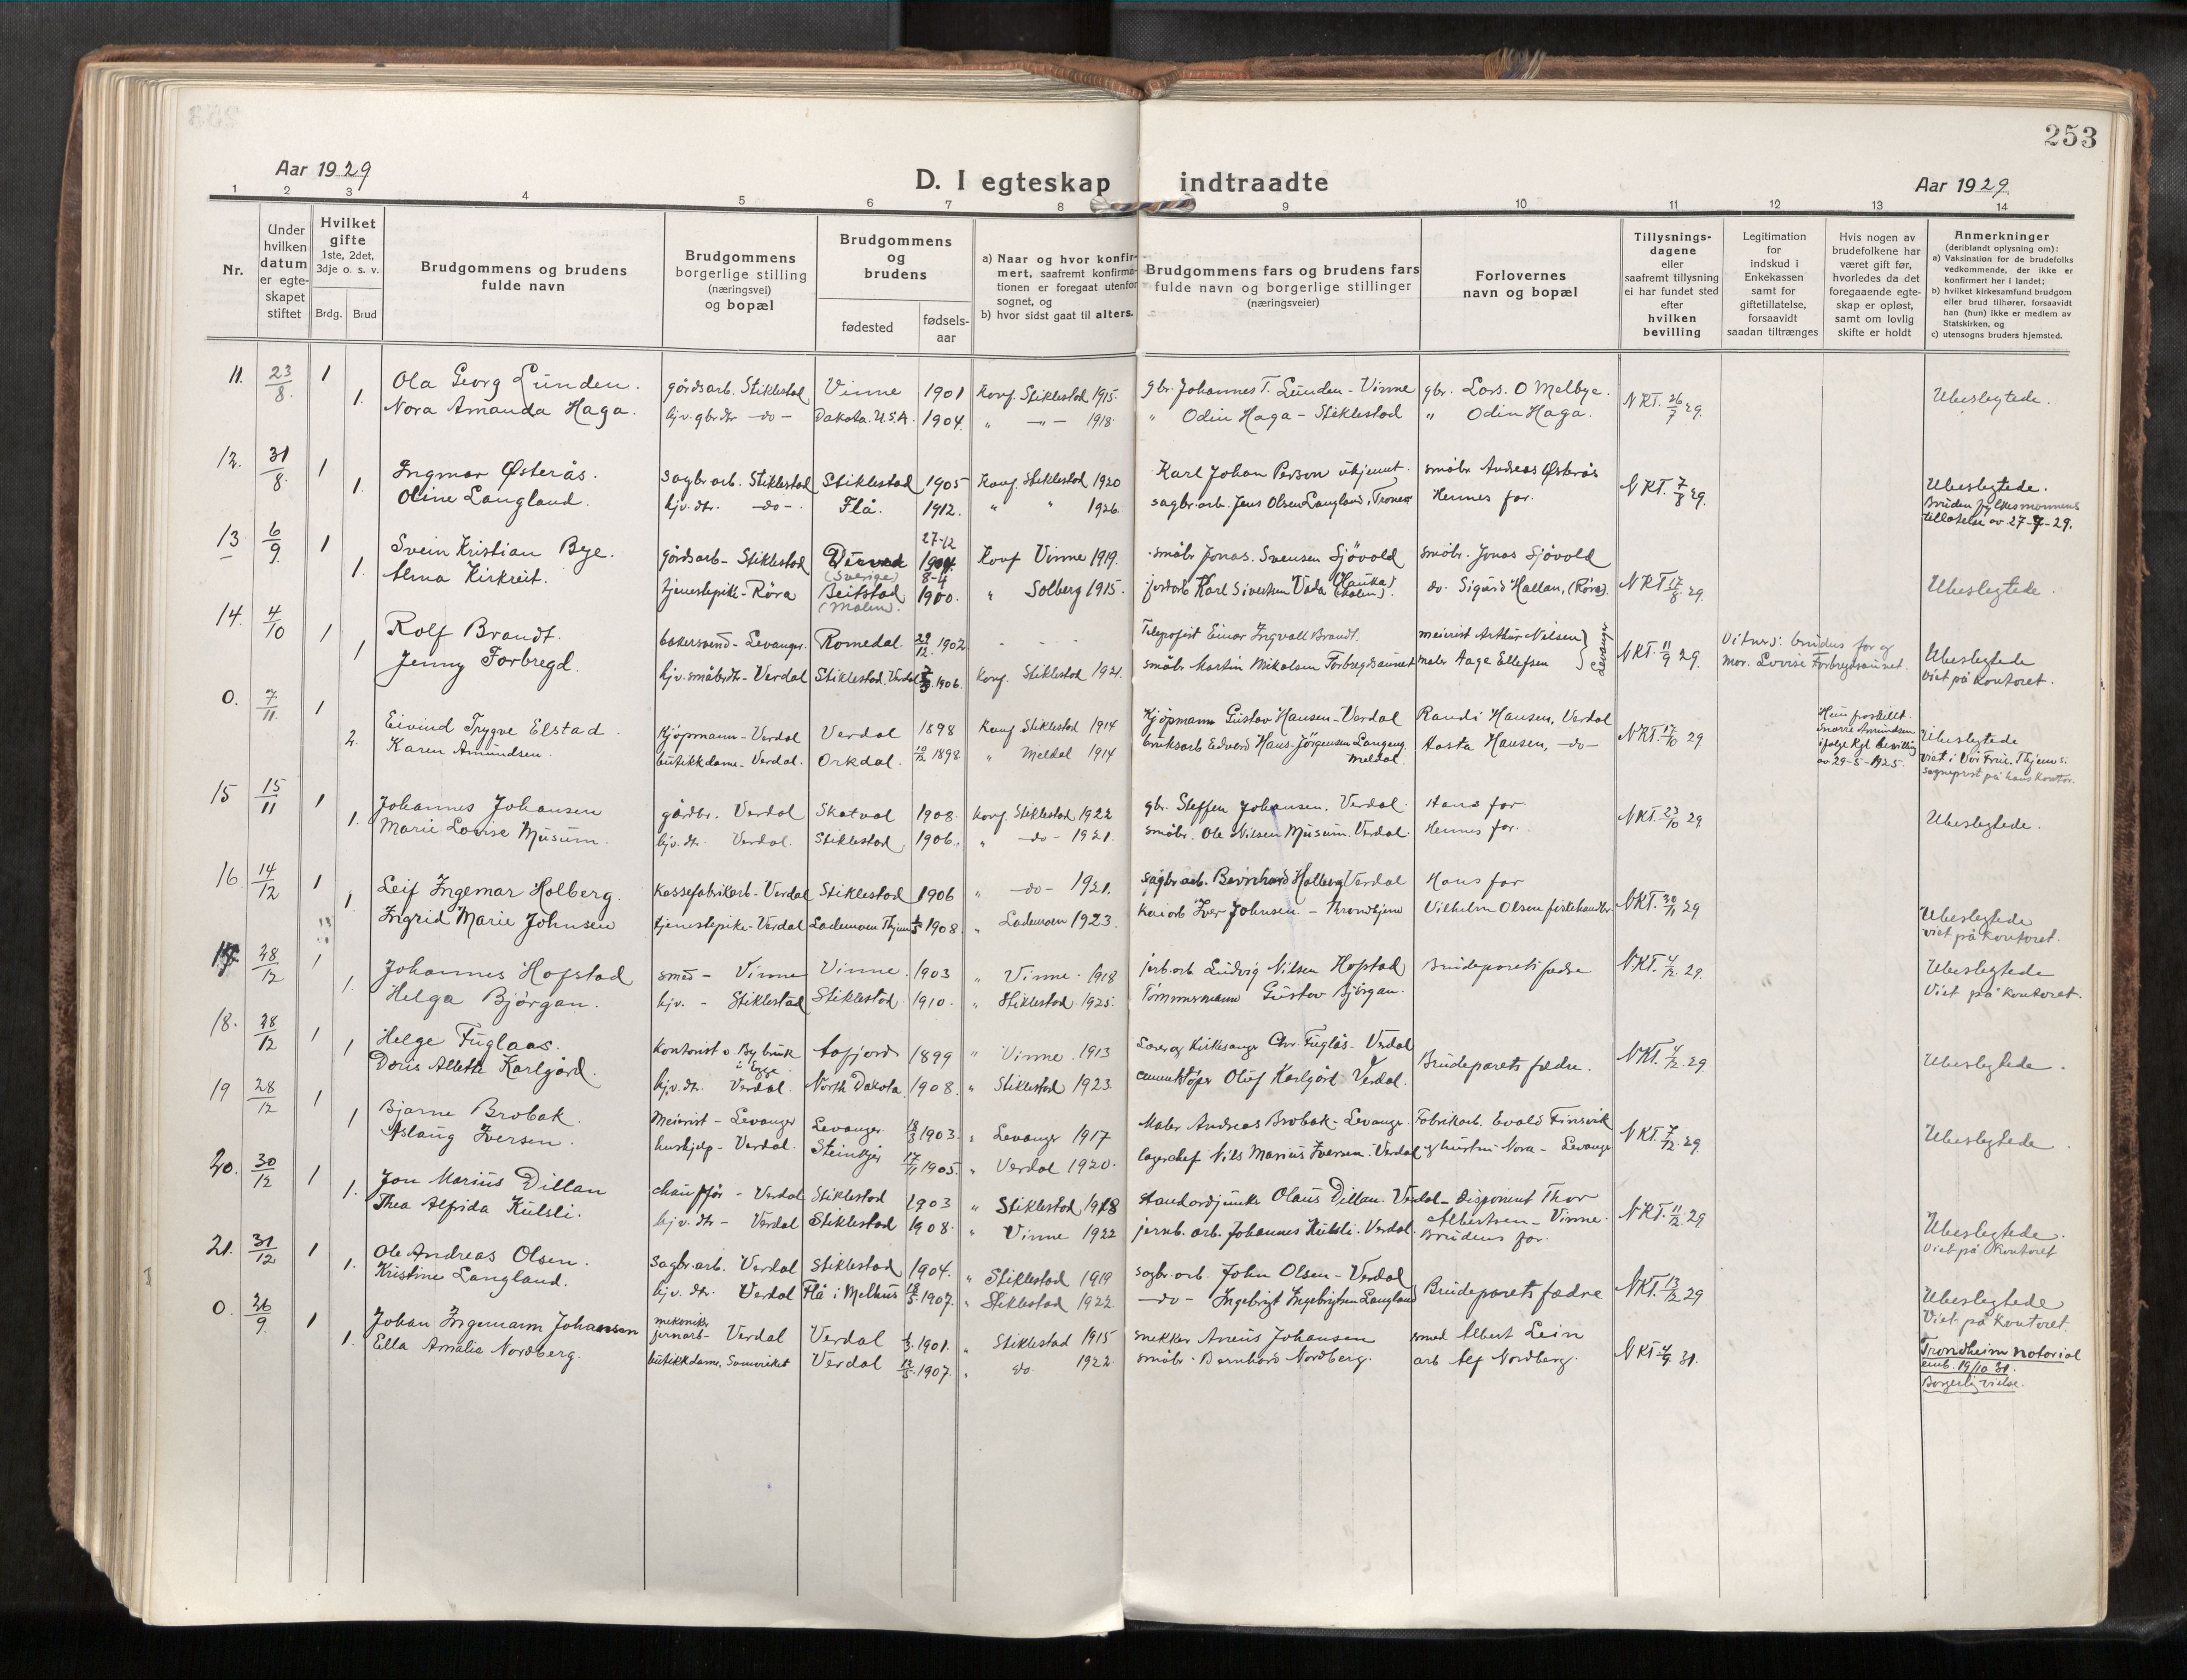 253
Aar 1929
D. I egteskap indtraadte
Aar 1929
1 2 3 4 5 6 7 8 9 10 11 12 13 14
Nr.
Under hvilken datum er egteskapet stiftet
Hvilket gifte 1ste, 2det, 3dje o. s. v.
Brdg. Brud
Brudgommens og brudens fulde navn
Brudgommens borgerlige stilling (næringsvei) og bopæl
Brudgommens og brudens
fødested
fødsels-aar
a) Naar og hvor konfirmert, saafremt konfirmationen er foregaat utenfor sognet, og
b) hvor sidst gaat til alters.
Brudgommens fars og brudens fars fulde navn og borgerlige stillinger (næringsveier)
Forlovernes navn og bopæl
Tillysnings-dagene eller saafremt tillysning ei har fundet sted efter hvilken bevilling
Legitimation for indskud i Enkekassen samt for giftetillatelse, forsaavidt saadan tiltrænges
Hvis nogen av brudefolkene har været gift før, hvorledes da det foregaaende egteskap er opløst, samt om lovlig skifte er holdt
Anmerkninger (deriblandt oplysning om):
a) Vaksination for de brudefolks vedkommende, der ikke er konfirmert her i landet;
b) hvilket kirkesamfund brudgom eller brud tilhører, forsaavidt han (hun) ikke er medlem av Statskirken, og
c) utensogns bruders hjemsted.
11. 23/8 1 Ola Georg Lunden. gårdsarb. Stiklestad Vinne 1901 Konf. Stiklestad 1915. gbr. Johannes T. Lunden - Vinne gbr. Lars. O Melbye. NKT. 26/7 29. Ubeslegtede.
1. Nora Amanda Haga. hjv. gbr.dtr -do- Dakota. U.S.A. 1904. " -"- 1918. " Odin Haga - Stiklestad " Odin Haga.
12. 31/8 1 Ingmar Østerås. sagbr.arb. Stiklestad Stiklestad 1905 Konf. Stiklestad 1920 Karl Johan Person ukjent. småbr. Andreas Østerås NKT. 7/8 29. Ubeslegtede.
1. Oline Langland. hjv. dtr. -do-. Flå. 1912. " " 1926. sagbr.arb. Jens Olsen Langland, Trones Hennes far. Bruden fylkesmannens tillatelse av 27-7-29.
13 6/9 1 Svein Kristian Bye. gårdsarb - Stiklestad (Sverige) 27-12 1904. Konf Vinne 1919. småbr Jonas. Svensen Sjövold småbr. Jonas Sjövold NKT 17/8 29. Ubeslegtede.
1. Alma Kirkreit. tjenestepike - Röra Beitstad (Malm). 8-4 1900. " Solberg 1915. jordarb Karl Sivertsen Vada do. Sigurd Hallan, (Röra).
14. 4/10 1 Rolf Brandt. bakersvend - Levanger. Romedal. 29/12 1902 - - - Einar Ingvall Brandt. meierist Arthur Nilsen Levanger NKT. 11/9 29. brudens far og Ubeslegtede
1 Jenny Forbregd. hjv. småbr.dtr - Verdal Stiklestad. Verdal 1906. Konf. Stiklestad 1921. småbr Martin Mikalsen Forbregdsaunet maler Aage Ellefsen mor. Lovise Forbregdsaunet. Viet på kontoret.
0. 7/11. 1 Eivind Trygve Elstad. Kjøpmann - Verdal Verdal 1898 Konf Stiklestad 1914 Kjøpmann Gustav Hansen - Verdal Randi Hansen, Verdal NKT. 17/10 29 Hun fraskilt. Snorre Amundsen ifølge Kgl. bevilling av 29-5-1925. Ubeslegtede
2. Karen Amundsen. butikkdame - Verdal. Orkdal. 1898. " Meldal 1914 bruksarb Edvard Hans Jörgensen Langeng. Meldal. Aasta Hansen, -do- viet i Vår Frue. Thjem s. sogneprest på hans kontor.
15 15/11 1 Johannes Johansen gårdbr. Verdal Skatval 1908. Konf. Stiklestad 1922 gbr. Steffen Johansen. Verdal. Hans far NKT. 23/10 29. Ubeslegtede.
1. Marie Lovise Musum. hjv. dtr. Verdal. Stiklestad. 1906. " -do- 1921. småbr. Ole Nilsen Musum. Verdal. Hennes far.
16. 14/12 1 Leif Ingemar Holberg. kassefabrikarb - Verdal Stiklestad 1906 " -do- 1921. sagbr.arb. Bernhard Holberg Verdal Hans far NKT. 30/11 29 Ubeslegtede
1. Ingrid Marie Johnsen tjenestepike - Verdal Lademoen Thjem 1908. " Lademoen 1923. kaiarb Iver Johnsen - Trondhjem Vilhelm Olsen fiskehandler viet på kontoret.
17. 28/12 1 Johannes Hofstad smed - Vinne Vinne. 1903 " Vinne. 1918 jarb.arb Ludvig Nilsen Hofstad Brudeparets fædre NKT. 4/12 29. Ubeslegtede
1. Helga Bjørgan. hjv. - Stiklestad Stiklestad. 1910. " Stiklestad. 1925. Tömmermann Gustav Bjørgan. Viet på kontoret.
18. 28/12 1 Helge Fuglaas. kontorist v. Bybruk i Egge. Aafjord 1899 " Vinne. 1913 Lærer og Kirkesanger Chr. Fuglås - Verdal Brudeparets fædre. NKT. 4/12 29 Ubeslegtede.
1 Doris Alette Karlgård. hjv. dtr. Verdal. North Dakota. 1908. " Stiklestad 1923. cementstøper Oluf Karlgård Verdal.
19 28/12 1 Bjarne Brobak. Meierist - Levanger Levanger 18/3 1903. " Levanger 1917 Maler Andreas Brobak - Levanger. Fabrikarb. Evald Finsvik NKT. 7/12 29. Ubeslegtede.
1 Aslaug Iversen. hushjelp - Verdal. Steinkjer 17/11 1905. " Verdal 1920. lagerchef Nils Marius Iversen. Verdal og hustru Nora - Levanger
20. 30/12 1 Jon Marius Dillan chauffør - Verdal Stiklestad 1903 " Stiklestad 1918 Olaus Dillan. Verdal - disponent Thor Albertsen - Vinne. NKT. 11/12 29 Ubeslegtede.
1. Thea Alfrida Kulsli. hjv. dtr - Verdal Stiklestad 1908. " Vinne 1922 jernb. arb. Johannes Kulsli. Verdal. Brudens far. Viet på kontoret
21. 31/12 1 Ole Andreas Olsen. Sagbr.arb. Verdal Stiklestad 1904. " Stiklestad 1919 sagbr.arb. John Olsen - Verdal Brudeparets fædre NKT. 13/12 29 Ubeslegtede
1. Kristine Langland. hjv. dtr. Verdal Flå i Melhus 1907. " Stiklestad 1922. -do- Ingebrigt Ingebrigtsen Langland Viet på kontoret.
0. 26/9. 1 Johan Ingemann Johansen mekanikr jernarb - Verdal Verdal 1901. " Stiklestad 1915 snekker Aneus Johansen smed Albert Lein NKT 4/9 31. Trondheim notarial emb. 19/10 31.
1. Ella Amalie Nordberg. butikkdame, Verdal 1907. " do. 1922. småbr. Bernhard Nordberg. arb Alf Nordberg. Borgerlig vielse.